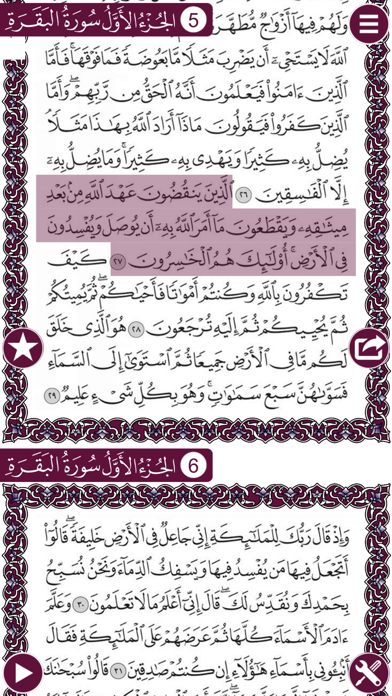 5 الجُزْءُ الأَوَّلُ سُورَةُ البَقَرَةِ
وَلَهُمْ فِيهَآ أَزْوَٰجٌ مُّطَهَّرَ
ٱللَّهَ لَا يَسْتَحْىِۦٓ أَن يَضْرِبَ مَثَلًا مَّا بَعُوضَةً فَمَا فَوْقَهَا ۚ فَأَمَّا
ٱلَّذِينَ ءَامَنُوا۟ فَيَعْلَمُونَ أَنَّهُ ٱلْحَقُّ مِن رَّبِّهِمْ ۖ وَأَمَّا
ٱلَّذِينَ كَفَرُوا۟ فَيَقُولُونَ مَاذَآ أَرَادَ ٱللَّهُ بِهَـٰذَا مَثَلًا ۘ
يُضِلُّ بِهِۦ كَثِيرًا وَيَهْدِى بِهِۦ كَثِيرًا ۚ وَمَا يُضِلُّ بِهِۦٓ
إِلَّا ٱلْفَـٰسِقِينَ ٢٦ ٱلَّذِينَ يَنقُضُونَ عَهْدَ ٱللَّهِ مِنۢ بَعْدِ
مِيثَـٰقِهِۦ وَيَقْطَعُونَ مَآ أَمَرَ ٱللَّهُ بِهِۦٓ أَن يُوصَلَ وَيُفْسِدُونَ
فِى ٱلْأَرْضِ ۚ أُو۟لَـٰٓئِكَ هُمُ ٱلْخَـٰسِرُونَ ٢٧ كَيْفَ
تَكْفُرُونَ بِٱللَّهِ وَكُنتُمْ أَمْوَٰتًا فَأَحْيَـٰكُمْ ۖ ثُمَّ يُمِيتُكُمْ
ثُمَّ يُحْيِيكُمْ ثُمَّ إِلَيْهِ تُرْجَعُونَ ٢٨ هُوَ ٱلَّذِى خَلَقَ
لَكُم مَّا فِى ٱلْأَرْضِ جَمِيعًا ثُمَّ ٱسْتَوَىٰٓ إِلَى ٱلسَّمَآءِ
فَسَوَّىٰهُنَّ سَبْعَ سَمَـٰوَٰتٍ ۚ وَهُوَ بِكُلِّ شَىْءٍ عَلِيمٌ ٢٩
6 الجُزْءُ الأَوَّلُ سُورَةُ البَقَرَةِ
وَإِذْ قَالَ رَبُّكَ لِلْمَلَـٰٓئِكَةِ إِنِّى جَاعِلٌ فِى ٱلْأَرْضِ خَلِيفَةً ۖ قَالُوٓا۟
أَتَجْعَلُ فِيهَا مَن يُفْسِدُ فِيهَا وَيَسْفِكُ ٱلدِّمَآءَ وَنَحْنُ نُسَبِّحُ
بِحَمْدِكَ وَنُقَدِّسُ لَكَ ۖ قَالَ إِنِّىٓ أَعْلَمُ مَا لَا تَعْلَمُونَ ٣٠ وَعَلَّمَ
ءَادَمَ ٱلْأَسْمَآءَ كُلَّهَا ثُمَّ عَرَضَهُمْ عَلَى ٱلْمَلَـٰٓئِكَةِ فَقَالَ
أَنۢبِـُٔونِى بِأَسْمَآءِ هَـٰٓؤُلَآءِ إِن كُنتُمْ صَـٰدِقِينَ ٣١ قَالُوا۟ سُبْحَـٰنَكَ